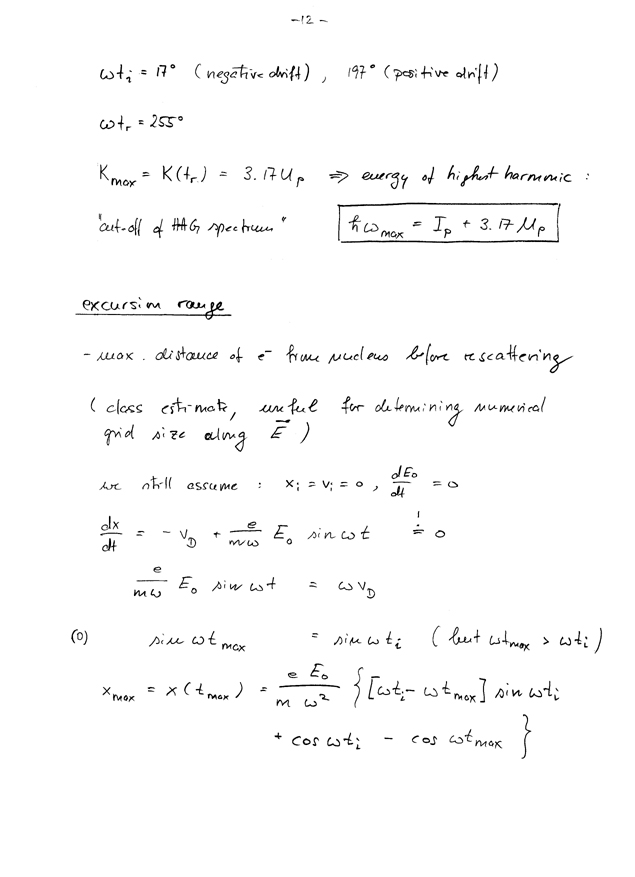 -12-
ωt_i = 17° (negative drift), 197° (positive drift)
ωt_r = 255°
K_max = K(t_r) = 3.17 U_p ⇒ energy of highest harmonic :
"cut-off of HHG spectrum" ħω_max = I_p + 3.17 U_p
excursion range
- max. distance of e⁻ from nucleus before rescattering
(class estimate, useful for determining numerical
grid size along E⃗ )
we still assume : x_i = v_i = 0, dE_0/dt = 0
dx/dt = - v_D + e/mω E_0 sin ωt != 0
e/mω E_0 sin ωt = ωv_D
(0) sin ωt_max = sin ωt_i (but ωt_max > ωt_i)
x_max = x(t_max) = e E_0 / m ω² { [ωt_i - ωt_max] sin ωt_i
+ cos ωt_i - cos ωt_max }